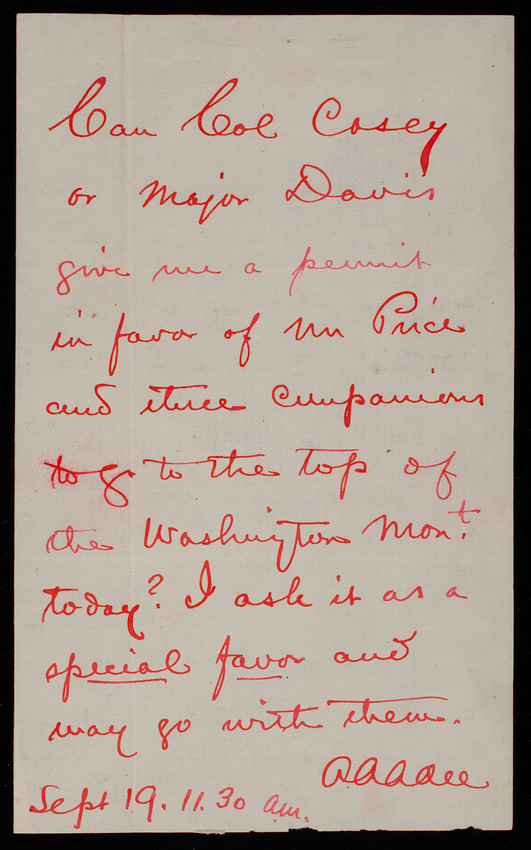 Can Col Casey
or Major Davis
give me a permit
in favor of Mr Price
and three companions
to go to the top of
the Washington Mont.
today? I ask it as a
special favor and
may go with them.
A A Adee
Sept 19. 11.30 a.m.